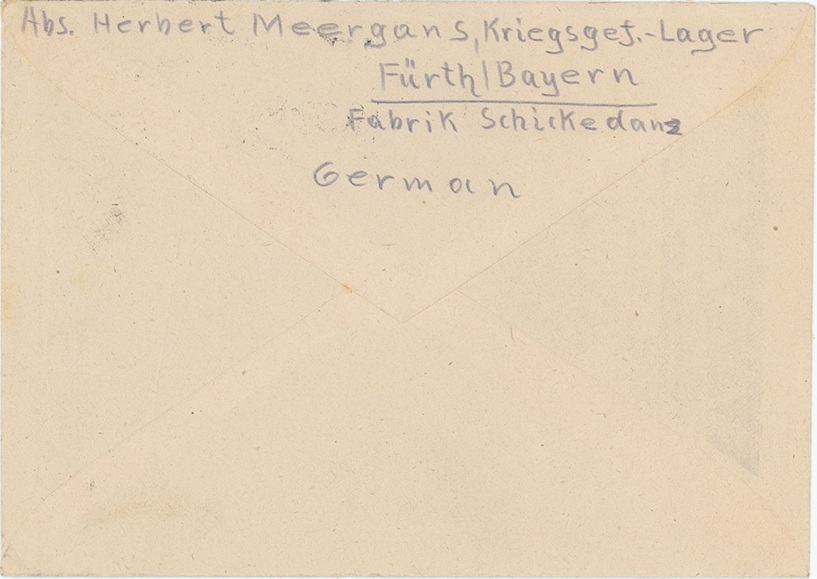 Abs. Herbert Meergans, Kriegsgef.-Lager
Fürth/Bayern
Fabrik Schickedanz
German